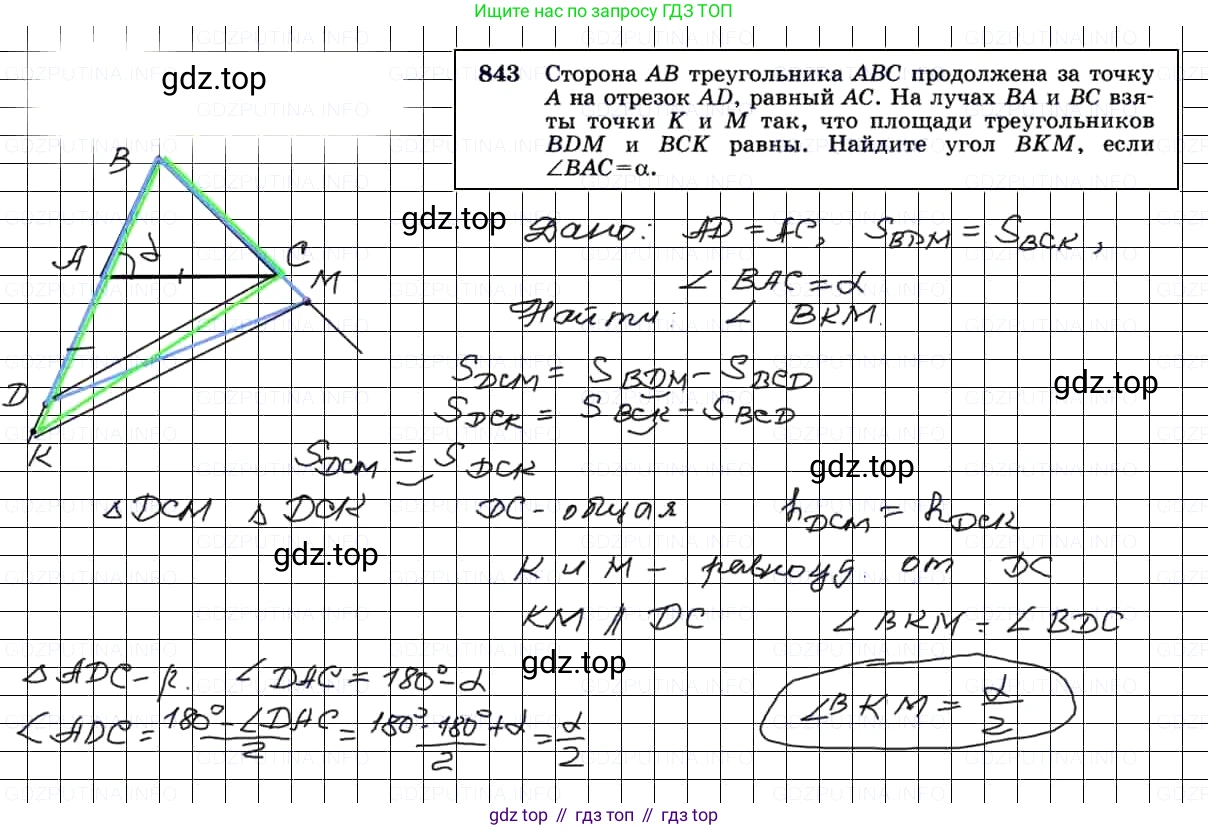 Ищите нас по запросу ГДЗ ТОП
gdz.top
843 Сторона AB треугольника ABC продолжена за точку
A на отрезок AD, равный AC. На лучах BA и BC взя-
ты точки K и M так, что площади треугольников
BDM и BCK равны. Найдите угол BKM, если
∠BAC=α.
B
A
α
C
M
D
K
gdz.top
Дано: AD = AC, S BDM = S BCK,
∠ BAC = α
Найти: ∠ BKM.
S DCM = S BDM - S BCD
gdz.top
S DCK = S BCK - S BCD
S DCM = S DCK
gdz.top
Δ DCM Δ DCK DC - общая h DCM = h DCK
gdz.top
K и M - равноуд. от DC
KM // DC ∠ BKM = ∠ BDC
gdz.top
Δ ADC - р. ∠ DAC = 180° - α
∠ ADC = 180° - ∠DAC / 2 = 180° - 180° + α / 2 = α / 2
∠BKM = α / 2
gdz.top // гдз топ // gdz.top